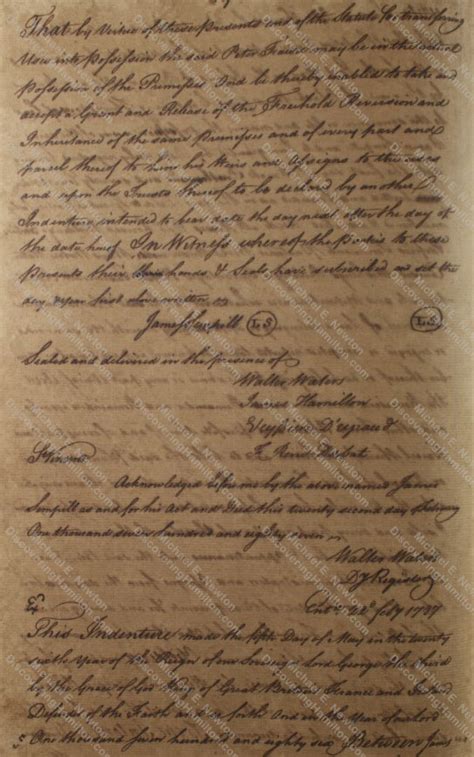 That by Virtue of these Presents and of the Statute for transferring
Uses into Possession the said Peter may be in the actual
Possession of the Premisses And be thereby enabled to take and
accept a Grant and Release of the Freehold Reversion and
Inheritance of the same Premisses and of every part and
parcel thereof to him his Heirs and Assigns to the uses
and upon the Trusts thereof to be declared by another
Indenture intended to bear date the day next after the day of
the date hereof In Witness whereof the Parties to these
Presents their hands & Seals have subscribed and set the
day & year first above written
James LS LS
Sealed and delivered in the presence of
Walter Waters
James Hamilton

St Vincent
Acknowledged before me by the above named James
as and for his Act and Deed this twenty second day of February
One thousand seven hundred and eighty seven
Walter Waters
Dy Register
Entd 22d Feby 1787
This Indenture made the fifth Day of May in the twenty
sixth Year of the Reign of our Sovereign Lord George the third
by the Grace of God King of Great Britain France and Ireland
Defender of the Faith and so forth And in the Year of our Lord
One thousand seven hundred and eighty six Between James
Michael E. Newton
DiscoveringHamilton.com